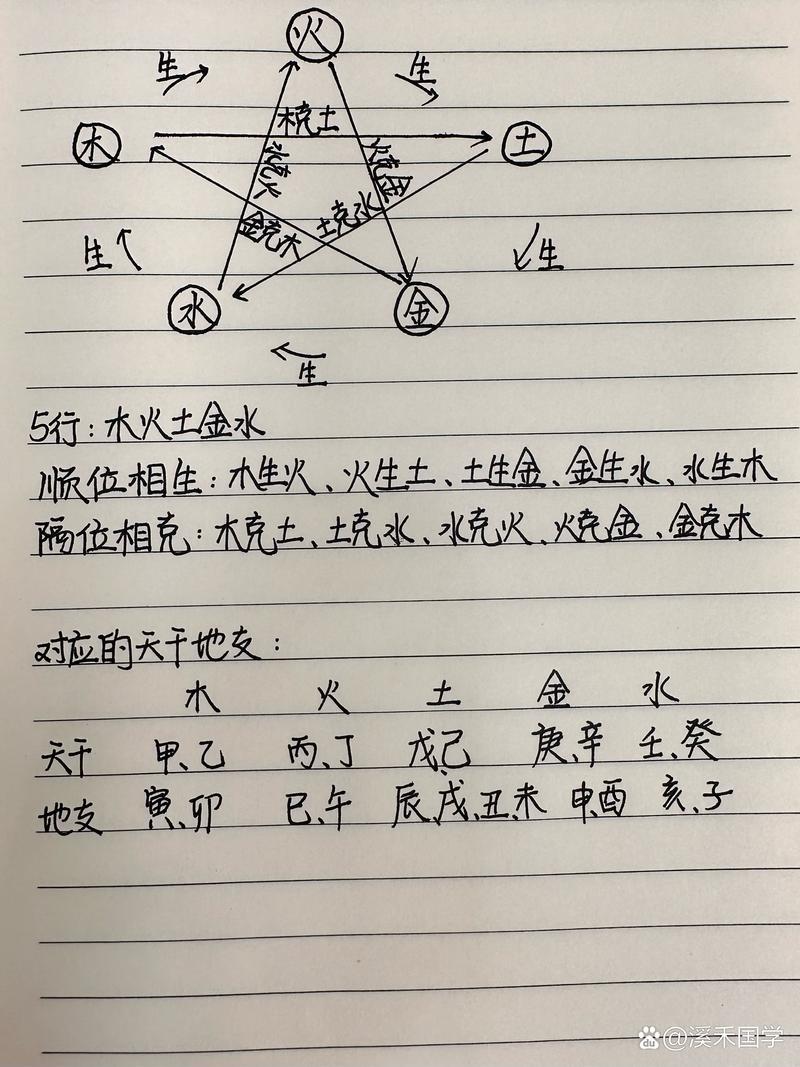 火
生 生
木 木克土 土
水克火 火克金
金克木 土克水
生 生
水 金
生
5行：木火土金水
顺位相生：木生火、火生土、土生金、金生水、水生木
隔位相克：木克土、土克水、水克火、火克金、金克木
对应的天干地支：
木 火 土 金 水
天干 甲、乙 丙、丁 戊、己 庚、辛 壬、癸
地支 寅、卯 巳、午 辰、戌、丑、未 申、酉 亥、子
Baidu @溪禾国学